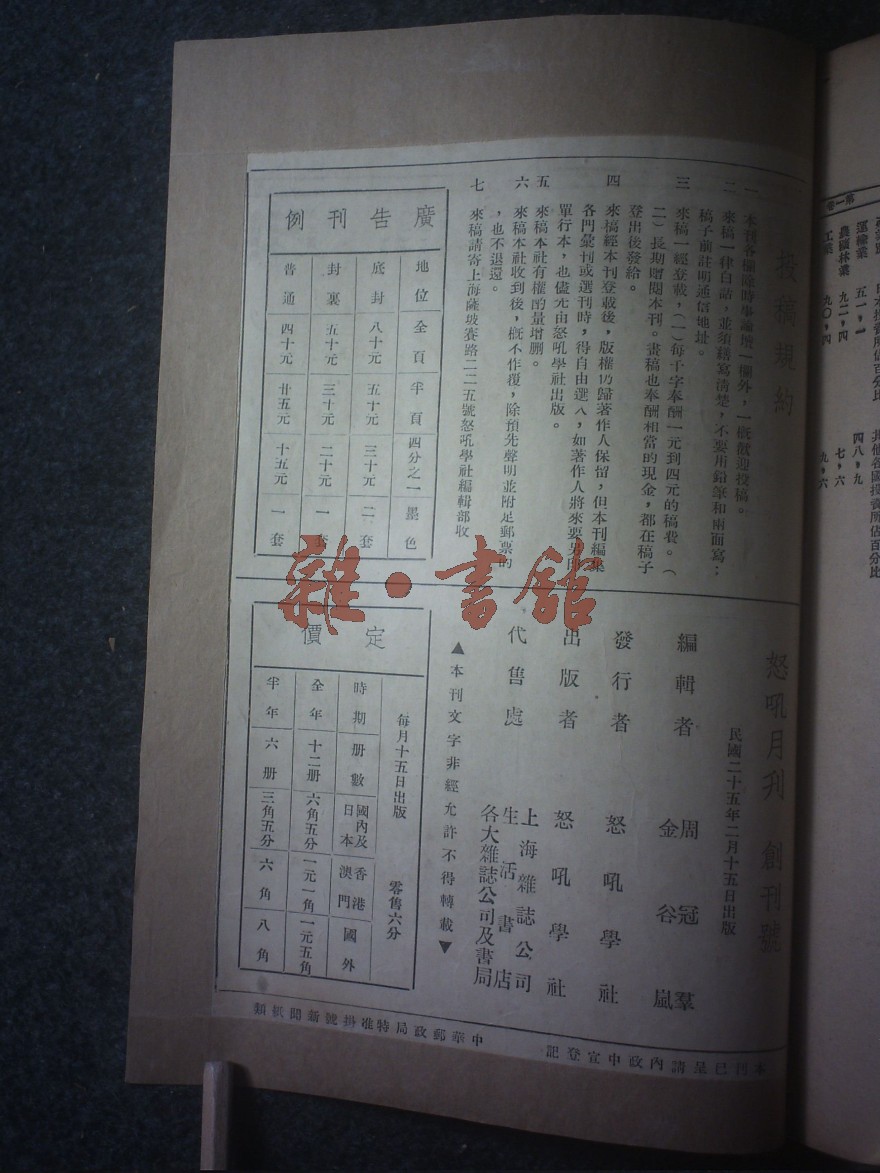 投稿規約
一 本刊各欄除時事論壇一欄外，一概歡迎投稿。
二 來稿一律白話，並須繕寫清楚，不要用鉛筆和兩面寫；
稿子前註明通信地址。
三 來稿一經登載，（一）每千字奉酬一元到四元的稿費。（
二）長期贈閱本刊。畫稿也奉酬相當的現金，都在稿子
登出後發給。
四 來稿經本刊登載後，版權仍歸著作人保留，但本刊編集
各門彙刊或選刊時，得自由選入，如著作人將來要另
單行本，也儘先由怒吼學社出版。
五 來稿本社有權酌量增删。
六 來稿本社收到後，概不作覆，除預先聲明並附足郵票的
，也不退還。
七 來稿請寄上海薩坡賽路二二五號怒吼學社編輯部收
廣告刊例
地位 全頁 半頁 四分之一 墨色
底封 八十元 五十元 三十元 二套
封裏 五十元 三十元 二十元 一套
普通 四十元 廿五元 十五元 一套
怒吼月刊 創刊號
民國二十五年二月十五日出版
編輯者 周冠羣
金谷嵐
發行者 怒吼學社
出版者 怒吼學社
代售處 上海雜誌公司
生活書店
各大雜誌公司及書局
▲本刊文字非經允許不得轉載▼
定價
每月十五日出版 零售六分
時期 册數 國內及日本 香港澳門 國外
全年 十二册 六角五分 一元一角 一元五角
半年 六册 三角五分 六角 八角
本刊已呈請內政中宣登記
中華郵政局特准掛號新聞紙類
第一
運輸業 五一，一 四八，九
農礦林業 九二，四 七，六
工業 九〇，四 九，六
其他各國投資所佔百分比
雜·書館